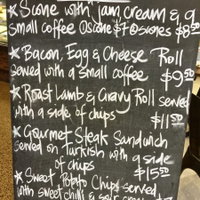 * Scone with jam cream & a
small coffee $8.50
* Bacon, Egg & Cheese Roll
served with a small coffee $9.50
* Roast Lamb & Gravy Roll served
with a side of chips
$11.50
* Gourmet Steak Sandwich
served on turkish with a side
of chips $15.50
* Sweet Potato Chips served
with sweet chilli & sour cream